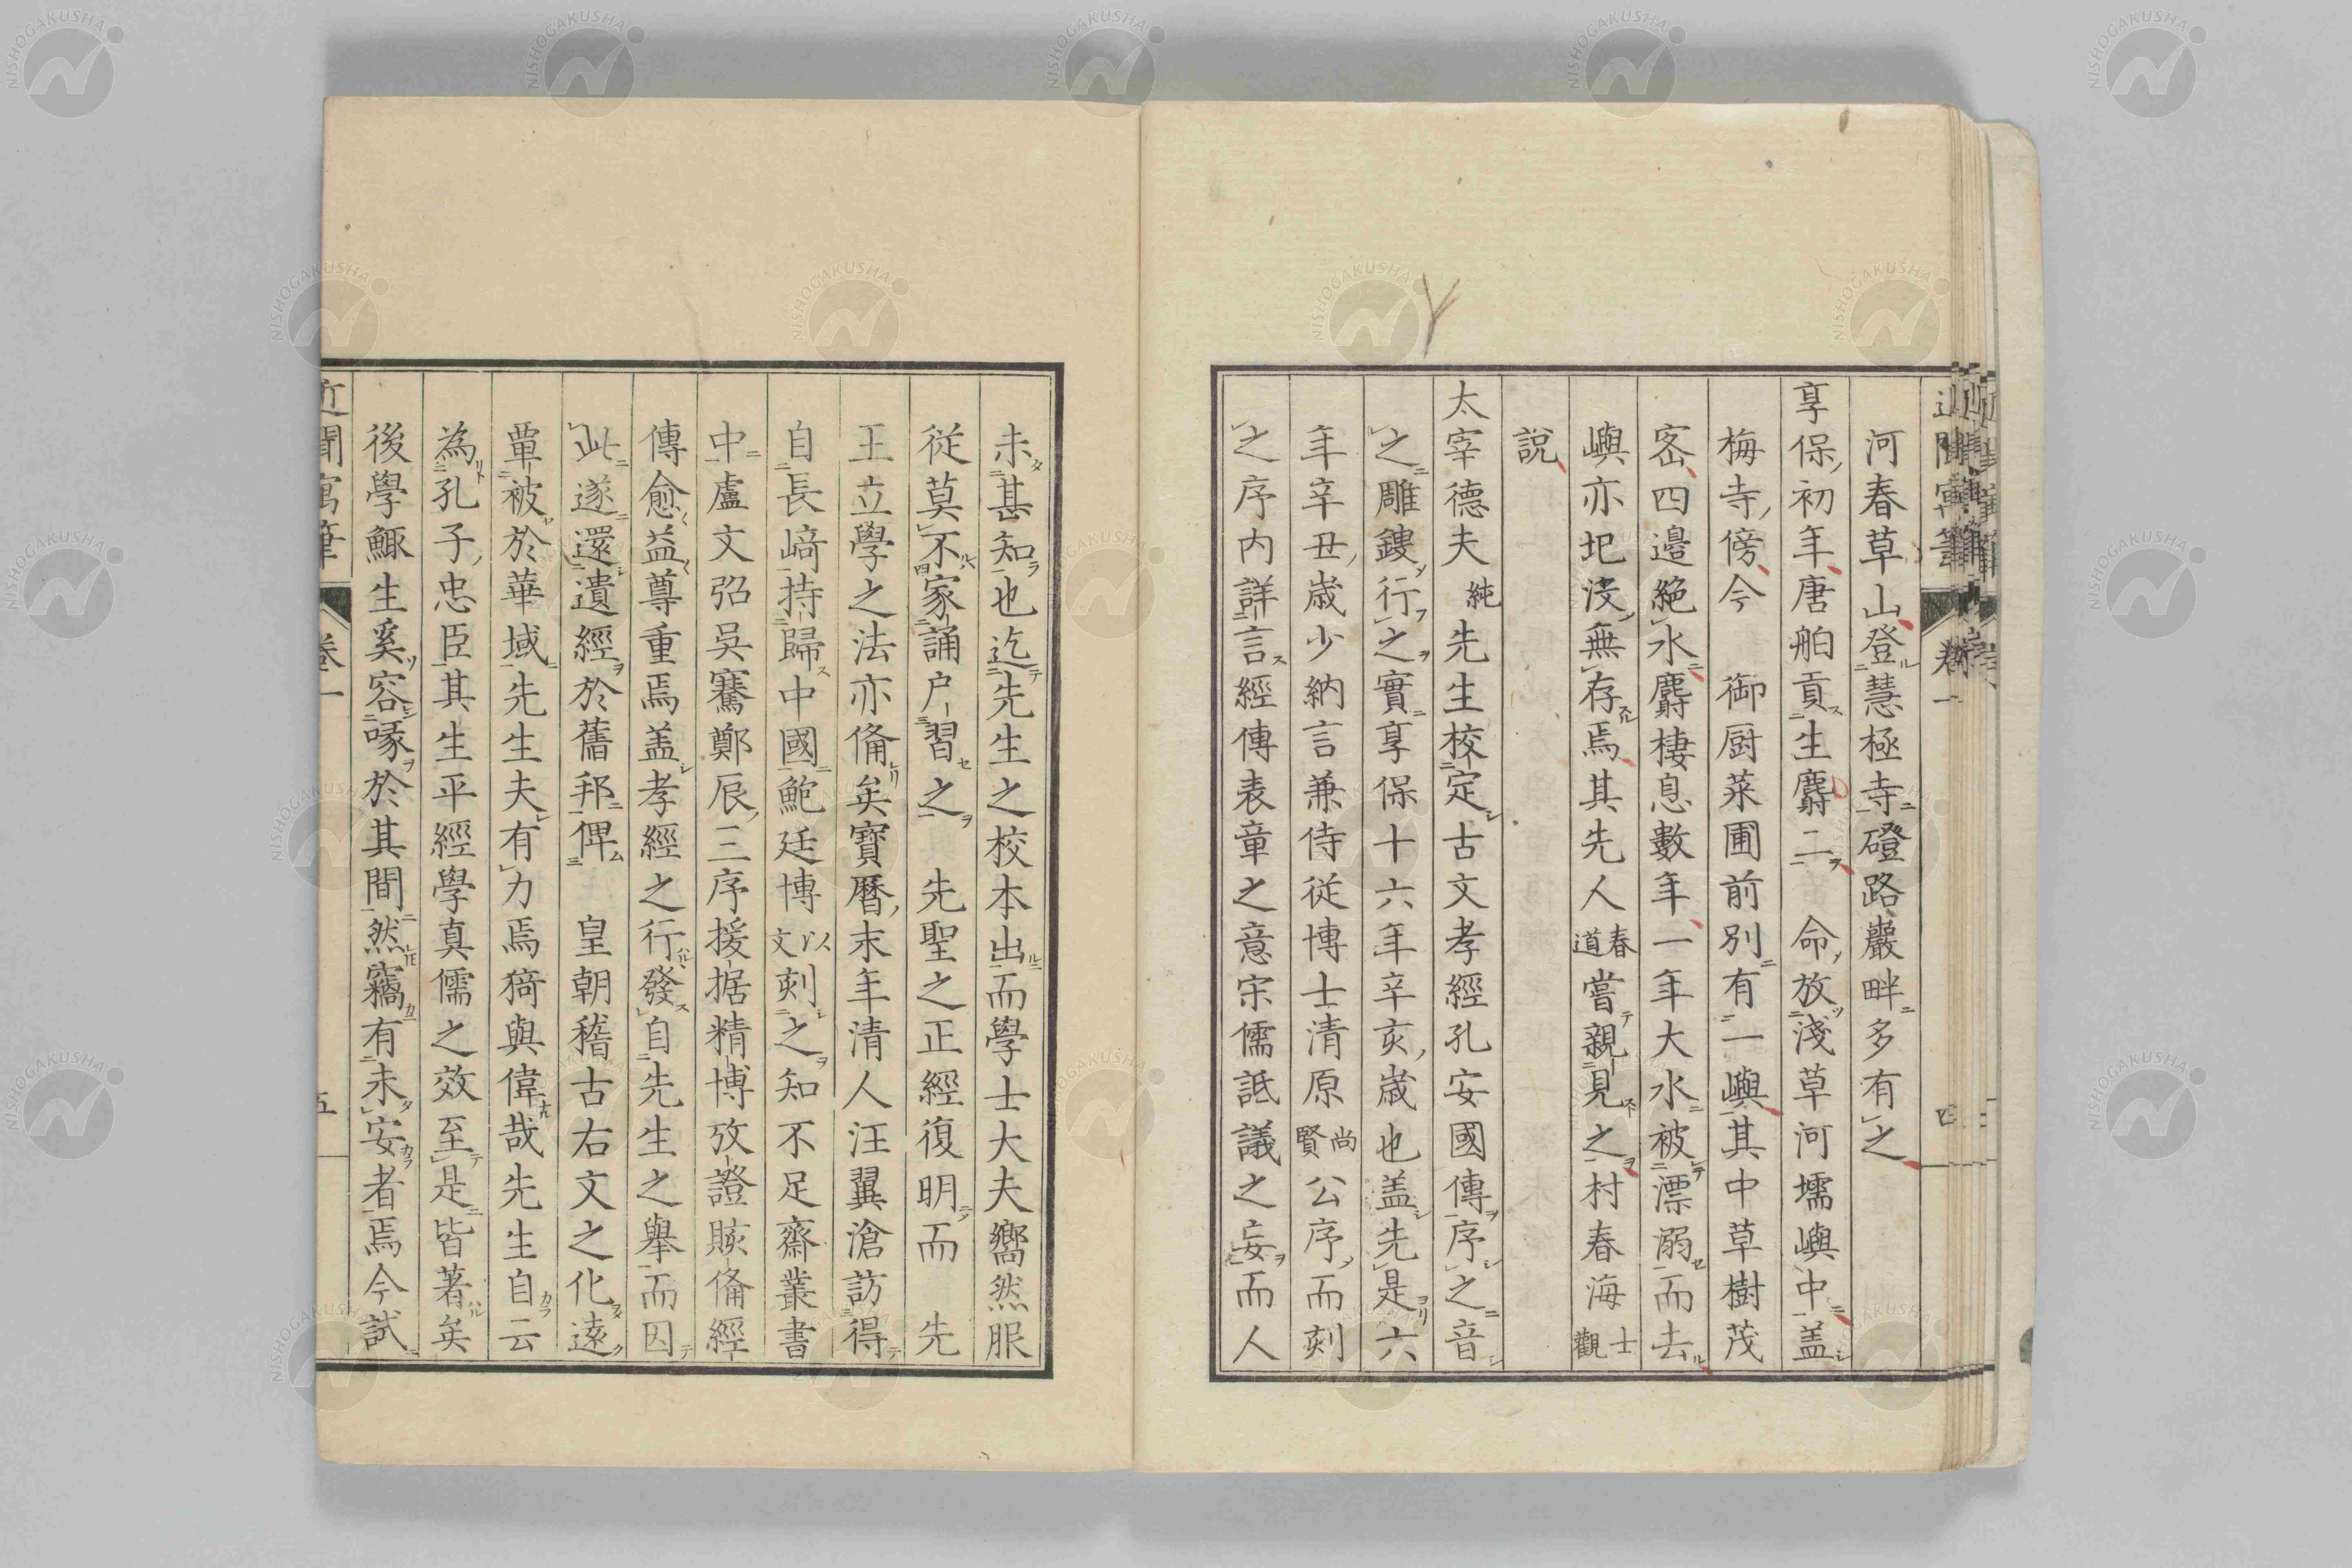 河春草山登慧極寺磴路巖畔多有之
享保初年唐舶貢生麝二　命放淺草河壖嶼中盖
梅寺傍今　御厨菜圃前別有一嶼其中草樹茂
宻四邉絶水麝棲息數年一年大水被漂溺而去
嶼亦圯沒無存焉其先人春道嘗親見之村春海士觀
説
太宰德夫純先生校定古文孝經孔安國傳序之音
之雕鏤行之實享保十六年辛亥歳也盖先是六
年辛丑歳少納言兼侍從博士清原尚賢公序而刻
之序内詳言經傳表章之意宋儒詆議之妄而人
未甚知也迄先生之校本出而學士大夫嚮然服
從莫不家誦户習之　先聖之正經復明而　先
王立學之法亦俻矣寶曆末年清人汪翼滄訪得
自長﨑持歸中國鮑廷博以文刻之知不足齋叢書
中盧文弨吳騫鄭辰三序援据精博攷證賅俻經
傳愈益尊重焉盖孝經之行發自先生之舉而因
此遂還遺經於舊邦俾　皇朝稽古右文之化遠
覃被於華域先生夫有力焉猗與偉哉先生自云
為孔子忠臣其生平經學真儒之效至是皆著矣
後學鯫生奚容喙於其間然竊有未安者焉今試
近聞寓筆
卷一
五
NISHOGAKUSHA